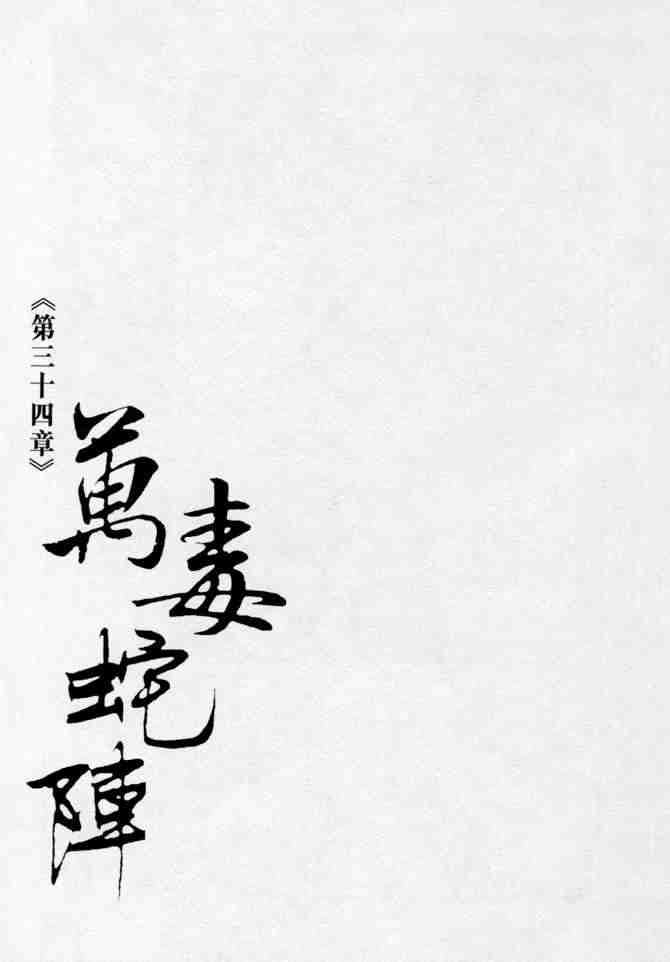 《第三十四章》
萬毒蛇陣